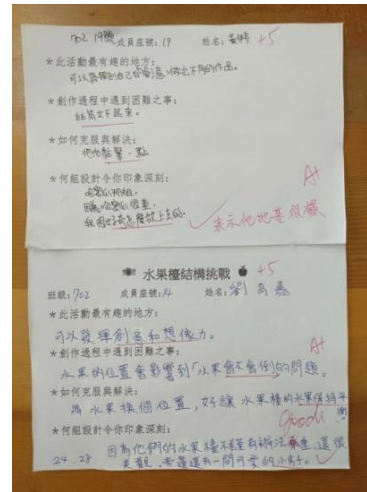 702 19號 成員座號：19 姓名： +5
＊此活動最有趣的地方：
可以發揮自己的創意，做出不同的作品。
＊創作過程中遇到困難之事：
站不起來。
＊如何克服與解決：
把他黏緊一點
＊何組設計令你印象深刻：
A+
很重，
我很好奇怎麼放上去的。
表示他地基很穩
水果檯結構挑戰 +5
班級：702 成員座號：14 姓名：劉 嘉
＊此活動最有趣的地方：
可以發揮創意和想像力。
A+
＊創作過程中遇到困難之事：
水果的位置會影響到「水果會不會倒」的問題。
＊如何克服與解決：
將水果換個位置，好讓水果檯的水果保持平衡。
Good!
＊何組設計令你印象深刻：
因為他們的水果檯不僅有辦法 ，還很
24.28 美觀， 還有一間可愛的小房子。